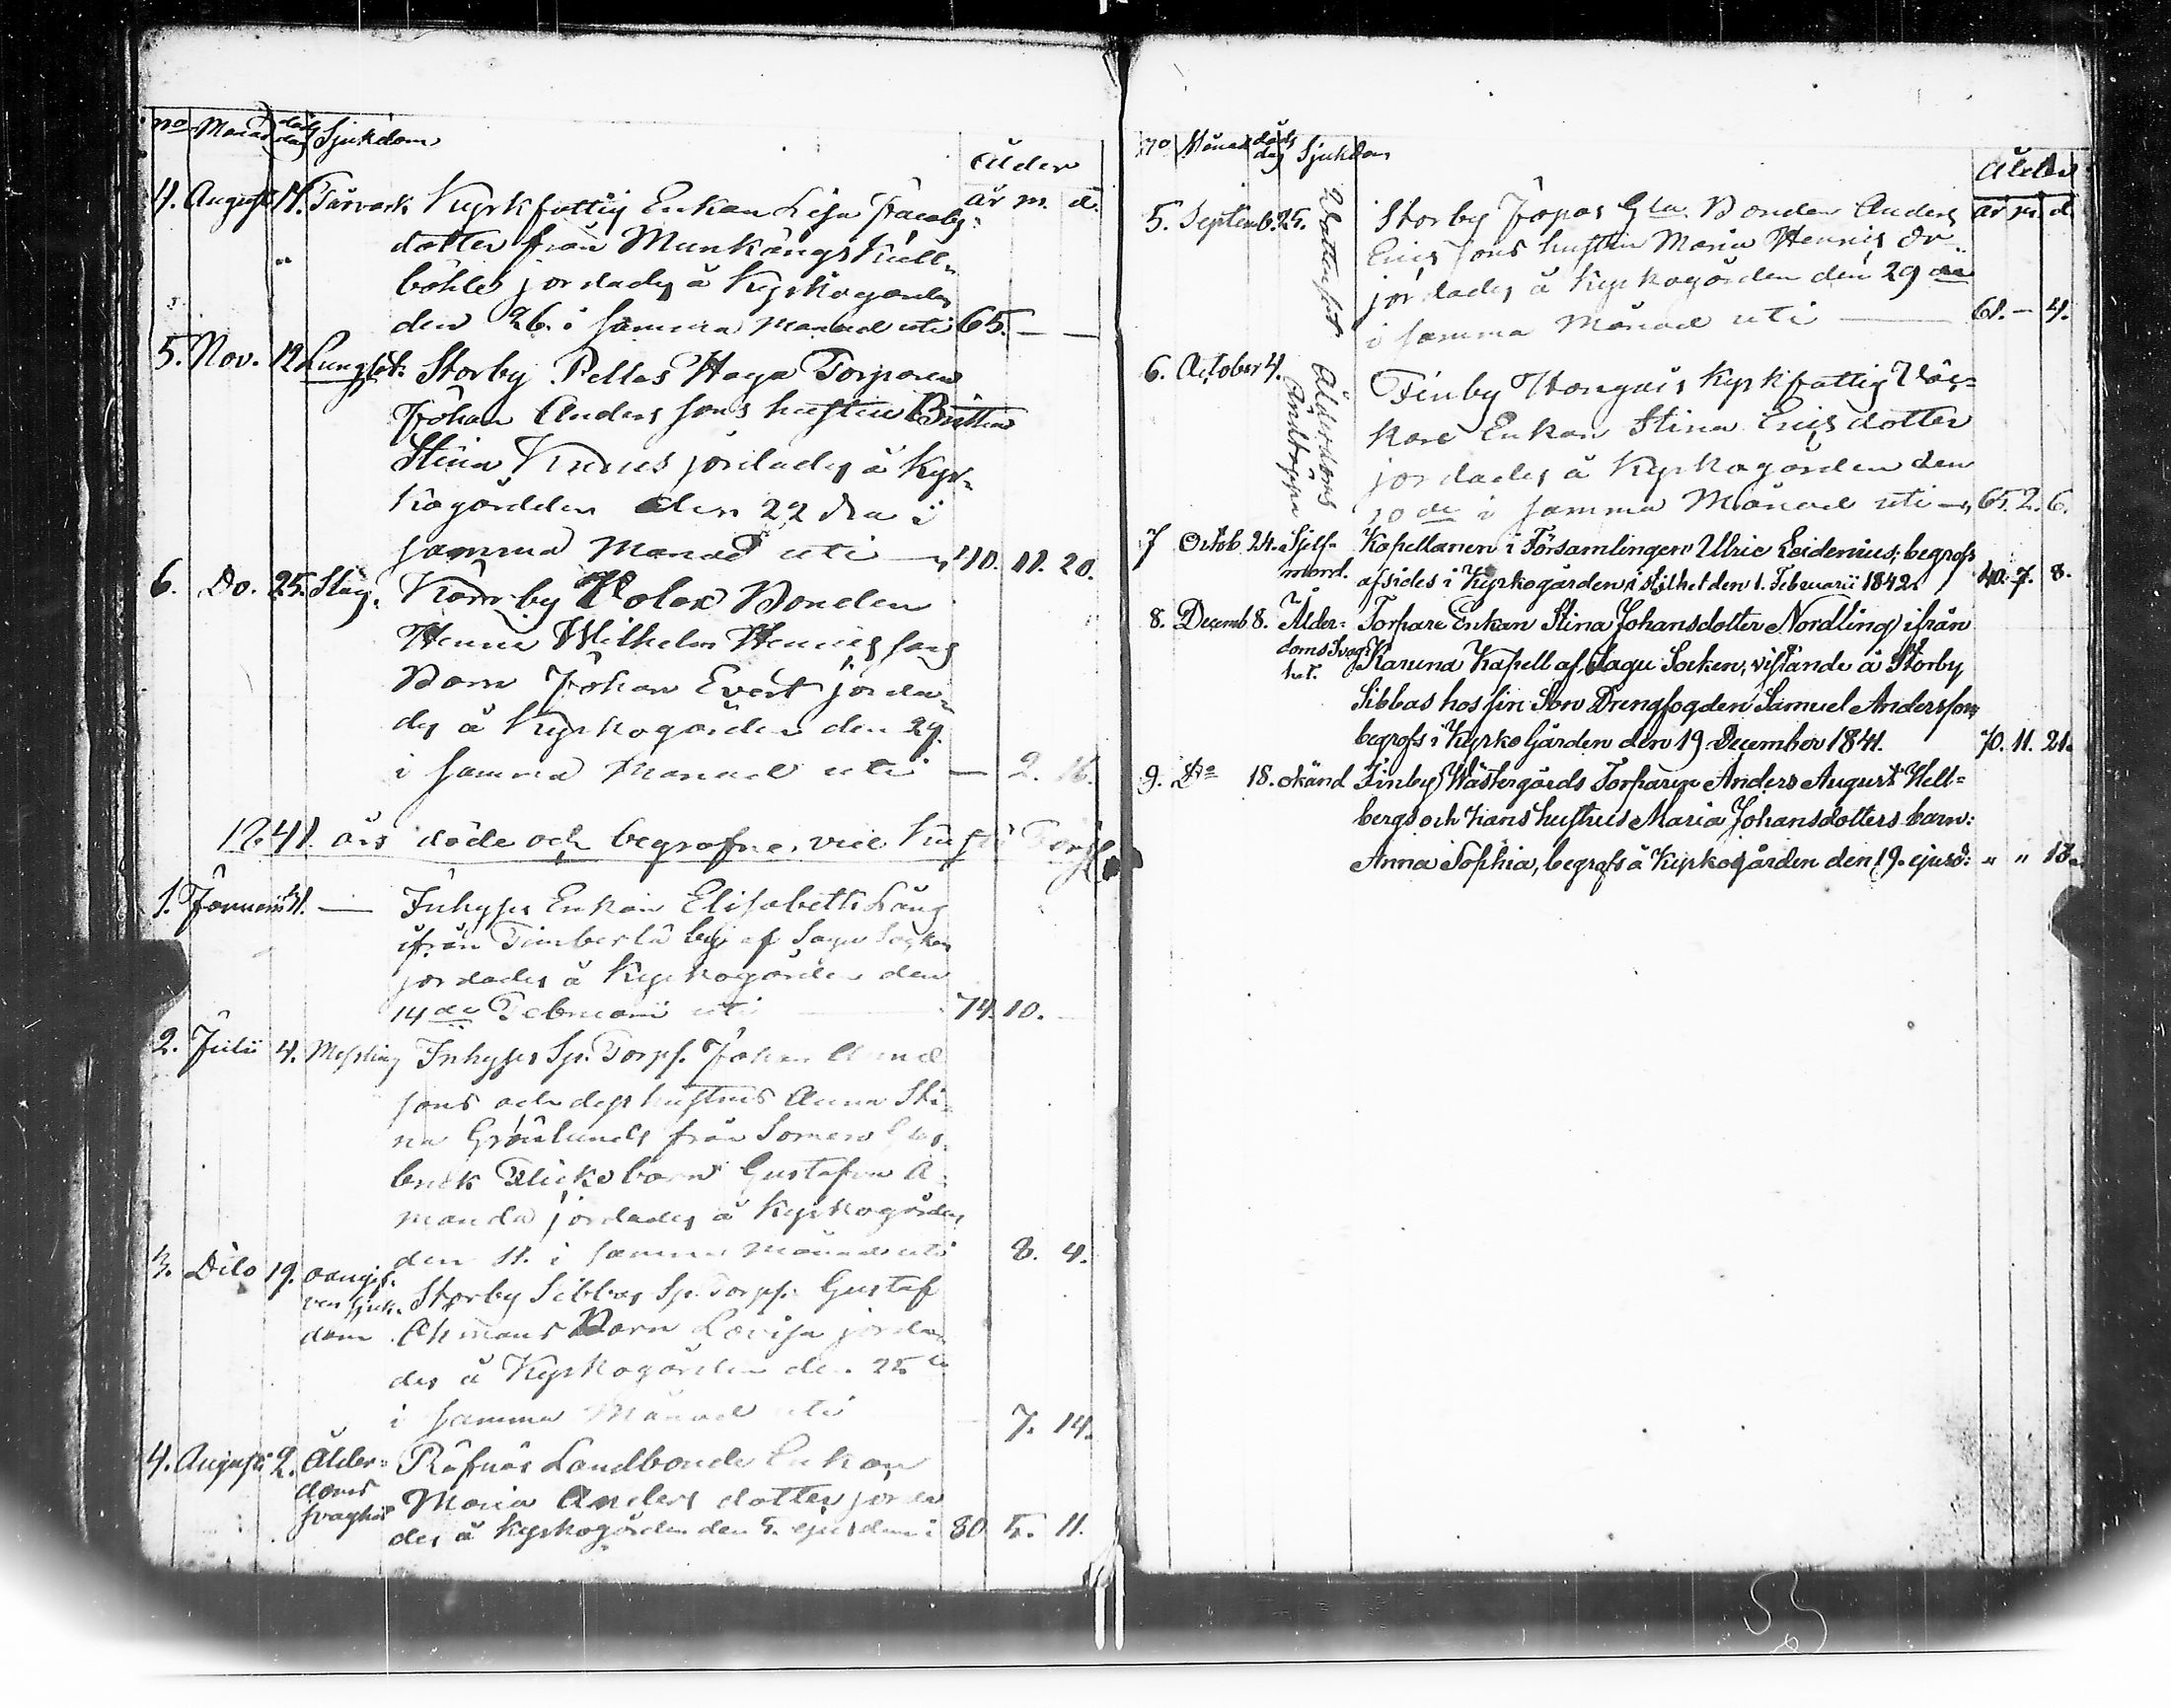 no Månad döds dag Sjukdom
Ålder
år m. d.
4. Augusti 14. Tärvark Kyrkfattig Enkan Lisa Jacobs-
dotter från Munkängs Kull-
böhle jordades å Kyrkogården
den 26. i samma månad uti 65. — —
5. Nov. 12 Lungsot. Storby Pellas Haga Torparen
Johan Anders sons hustru Britta
Stina jordades å Kyr-
kogården den 22 dra i
samma Månad uti — 40. 11. 20.
6. Do. 25. Slag. by Bonden
Henric Wilhelm Henrics sons
Barn Johan Evert jorda-
des å Kyrkogården den 29.
i samma Månad uti — 2. 16.
1841. års döde och begrafne, vid
1. Januarii 31. — Inhyses Enkan Elisabeth Lång
ifrån by af Sagu Socken
jordades å Kyrkogården den
14de Februarii uti — 74. 10. —
2. Julii 4. Messling Inhyses Sp. Torp. Johan
sons och dess hustrus Anna Sti-
na Grönlunds från Somero Glas-
bruk Flicko barn Gustafva A-
manda jordades å Kyrkogården
den 11. i samma Månad uti 8. 4.
3. Dito 19. oangif- ven sjuk- dom Storby Sibbas Sp. Torp. Gustaf
Åhmans Barn Lovisa jorda-
des å Kyrkogården den 25te
i samma Månad uti — 7. 14.
4. Augusti 2. Ålder- doms svaghet Räfnäs Landbonde Enkan
Maria Anders dotter jorda
des å Kyrkogården den 5. ejusdem i 80 5. 11.
no Månad döds dag Sjukdom
Ålder
år m. d.
5. Septemb. 25. Vattusot Storby Gla Bonden Anders
Erics sons hustru Maria Henrics dr
jordades å Kyrkogården den 29de
i samma Månad uti — 61. — 4.
6. October 4. Ålderdoms Andtäppa Finby KyrkfattigVäf-
kare Enkan Stina Erics dotter
jordades å Kyrkogården den
10de i samma Månad uti — 65. 2. 6.
7 Octob 24. Sjelf- mord. Kapellanen i Församlingen Ulric Leidenius; begrofs
afsides i Kyrkogården i stilhet den 1. Februarii 1842. 40. 7. 8.
8. Decemb 8. Ålder- doms Svag- het. Torpare Enkan Stina Johansdotter Nordling ifrån
Karuna Kapell af Sagu Socken, vistande å Storby
Sibbas hos sin Son Drengfogden Samuel Andersson,
begrofs i Kyrko Gården den 19. December 1841. 70. 11. 21.
9. Do 18. okänd Finby Wästergårds Torparen Anders August Hell-
bergs och hans hustrus Maria Johansdotters barn:
Anna Sophia, begrofs å Kyrkogården den 19. ejusd: " " 18.